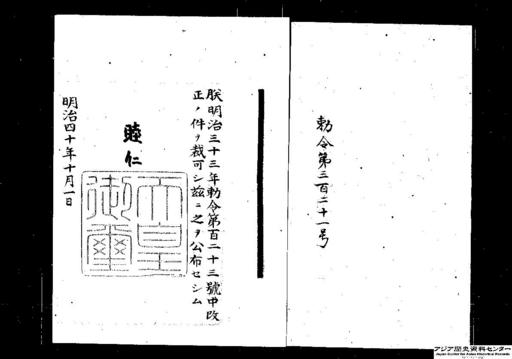 勅令第三百二十一号
朕明治三十三年勅令第百二十三號中改
正ノ件ヲ裁可シ茲ニ之ヲ公布セシム
睦仁
天皇
御璽
明治四十年十月一日
アジア歴史資料センター
Japan Center for Asian Historical Records